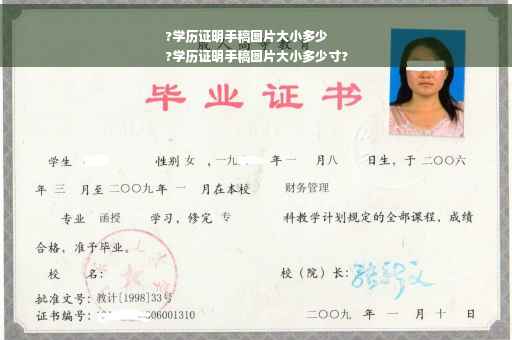 ?学历证明手稿图片大小多少
?学历证明手稿图片大小多少寸?
毕业证书
学生 性别 女 ，一九 年 一 月八 日生，于 二〇〇六
年 三 月至 二〇〇九 年 一 月在本校 财务管理
专业 函授 学习，修完 专 科教学计划规定的全部课程，成绩
合格，准予毕业。
校 名： 校（院）长：
批准文号：教计[1998]33号
证书编号： 06001310 二〇〇九 年 一 月 十 日